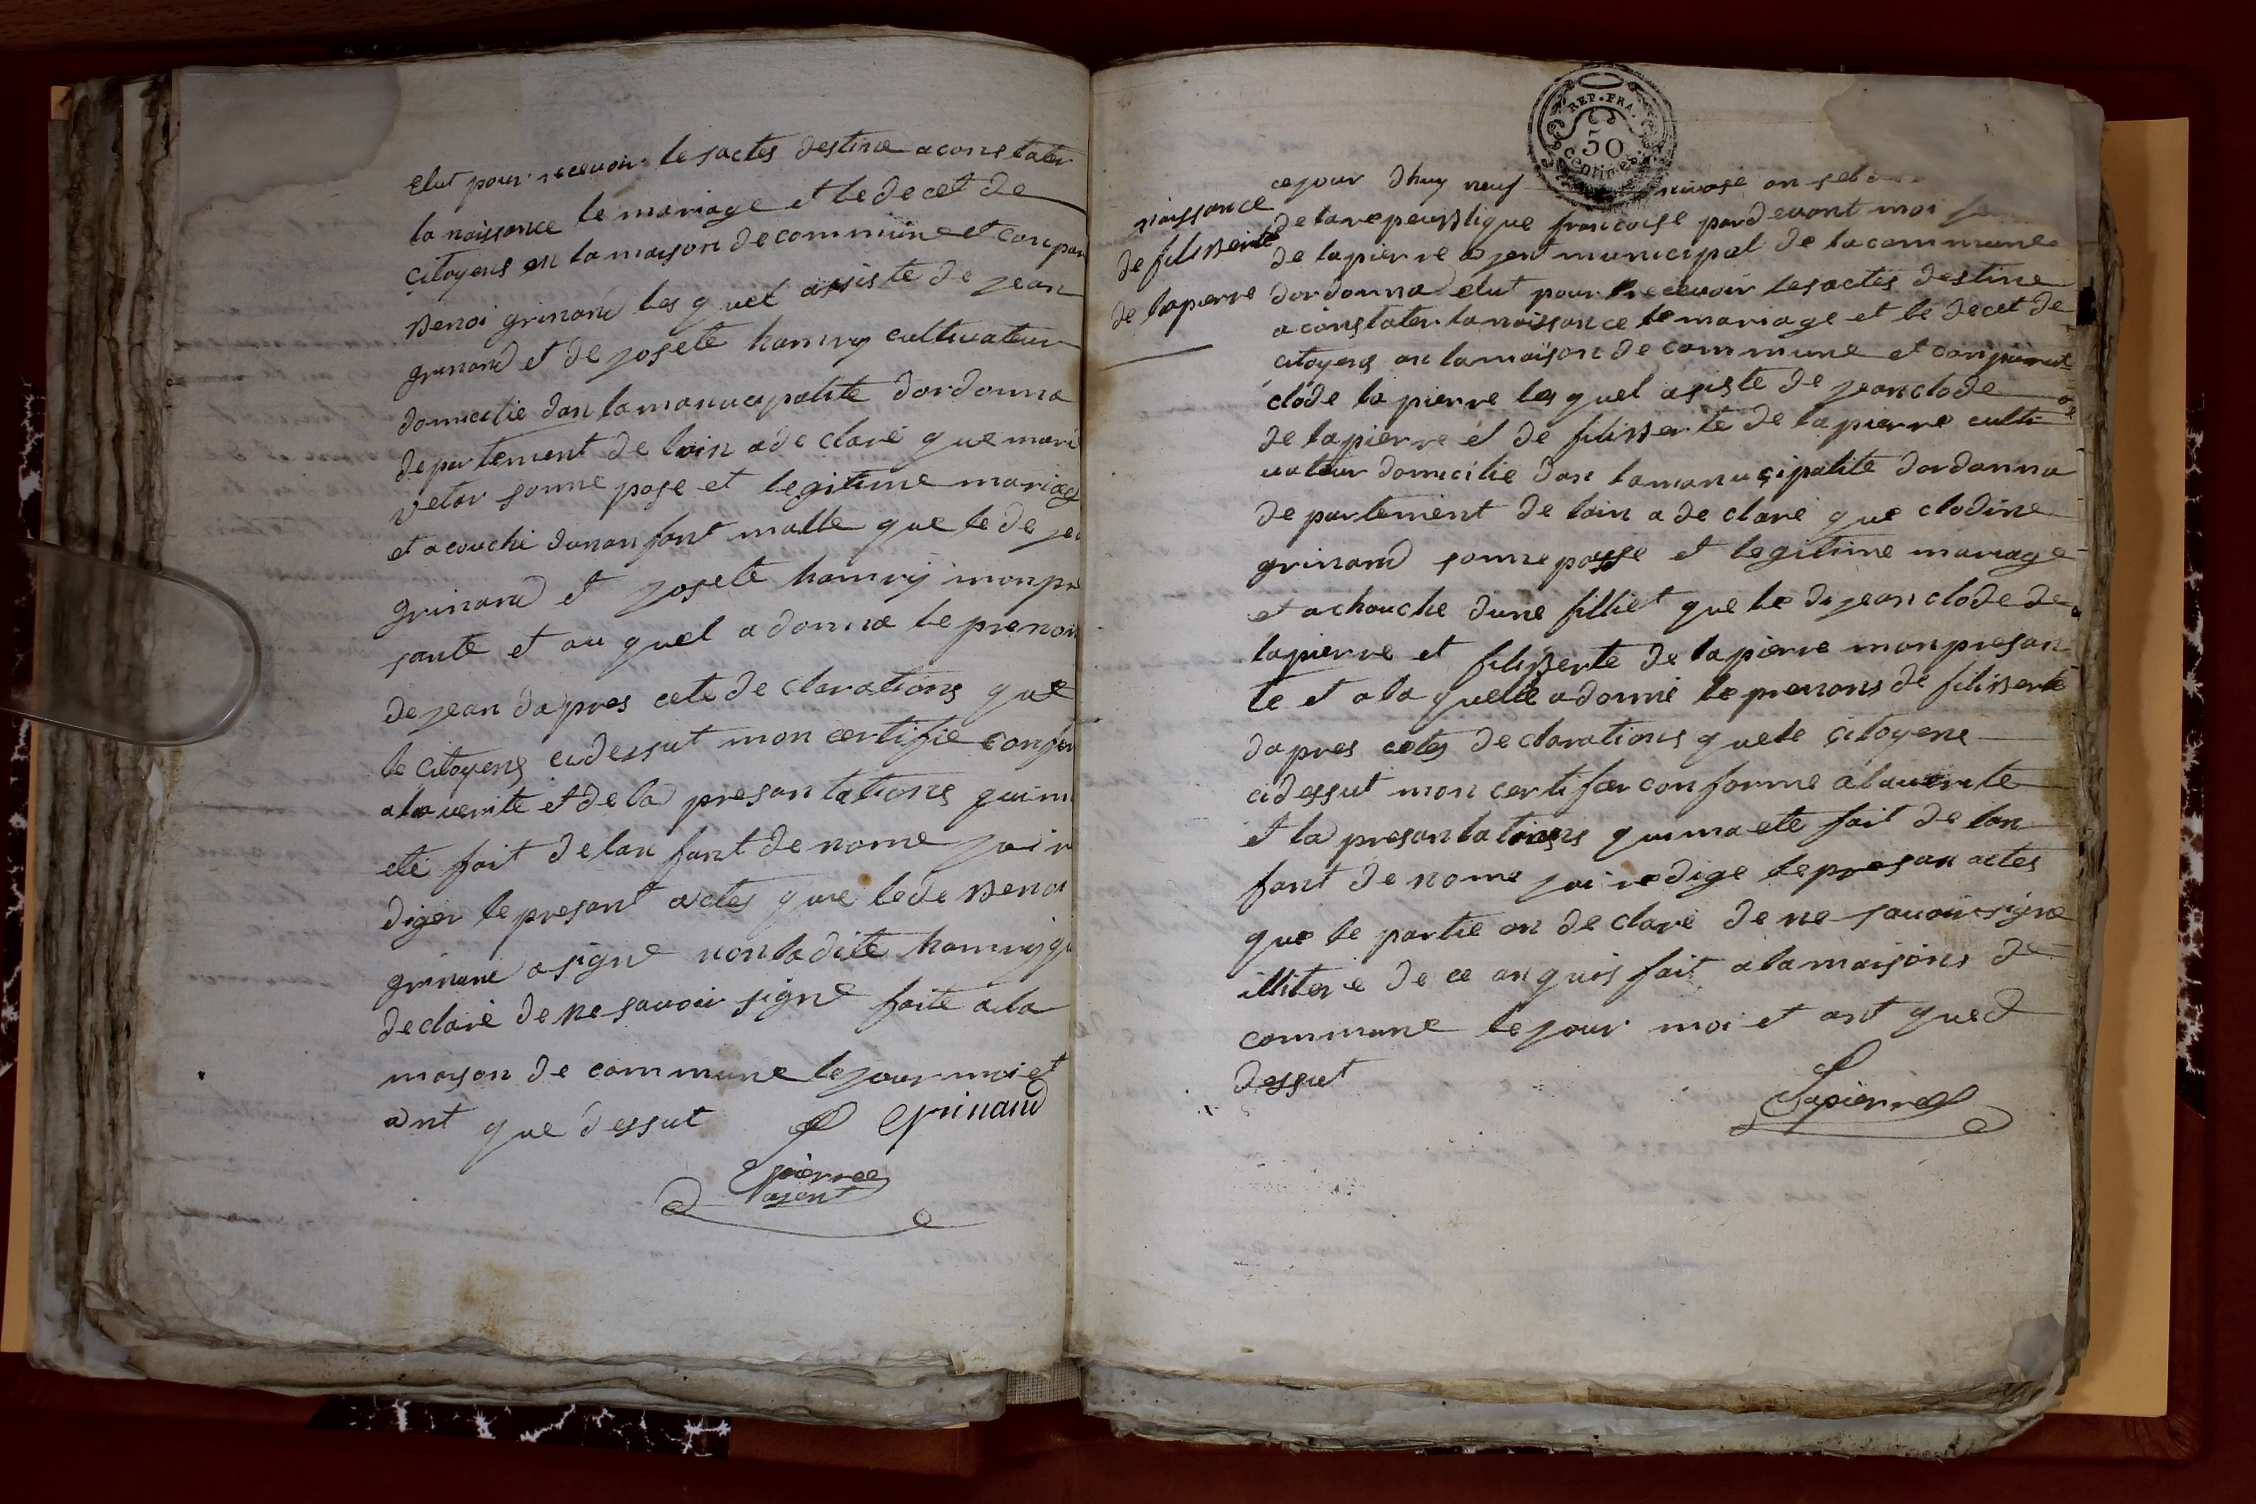 elut pour recevoir les actes destine a constater
la naissance le mariage et le decet de
citoyens en la maison de commune et conpar
Benoi grinand les quel asiste de jean
grinand et de josete hamry cultivateur
domicilie dan la manucipalite dordonna
departement de lain a de claré que mari
velar sonne pose et legitime mariag
et a couché dunan fant malle que le de jea
grinand et josete hamry mon pre
sante et au quel a donna le prenon
de jean dapres cete de clarations que
le citoyens cidessut mon certifie confor
a la verite et de la presantations qui m
eté fait de lan fant de nome jai r
diger le presant actes que le de Benoi
grinand a signe non la dite hamry qu
declaré de ne savoir signe faite a la
maison de commune le jour moi et
ant que dessut grinand
pierre
agent
REP. FRA.
50
centimes
naissance
de filiberte
de lapierre
ce jour dhuy neuf nivose an set
de la repeublique francaise pardevant moi
de lapierre agent municipal de la commune
dordonna elut pour recevoir les actes destine
a constater la naissance le mariage et le decet de
citoyens an la maison de commune et conparut
clode la pierre les quel asiste de jean clode
de lapierre et de filiberte de la pierre culti
vateur domicilie dan la manucipalite dordonna
de partement de lain a de claré que clodine
grinand sonne posse et legitime mariage
et a chouche dune filliet que le de jean clode de
lapierre et filiberte de la pierre mon presan
te et a la quelle a donné le prenons de filiberte
dapres cetes declarations que le citoyens
cidessut mon certifier conforme a la verite
et la presantations qui ma ete fait de lan
fant de nome jai redige le presan actes
que le partie on de claré de ne savoir signe
illitere de ce anquis fait a la maisons de
commune le jour moi et ant que
dessut
Lapierre